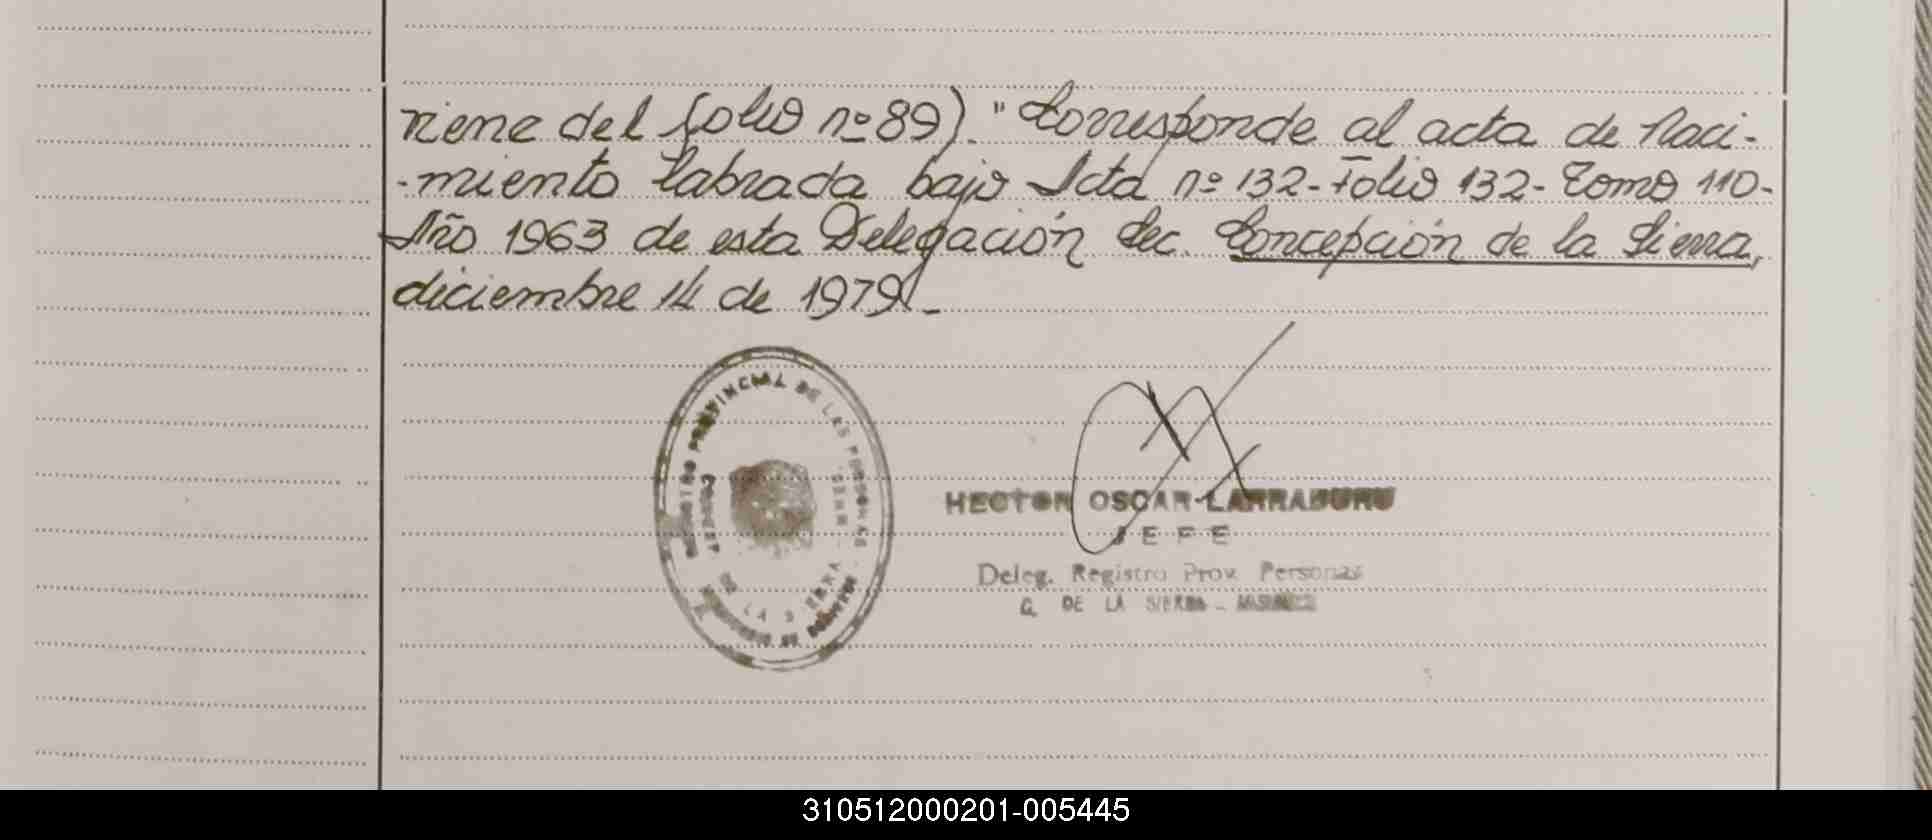 viene del folio nº 89). "Corresponde al acta de Naci-
-miento labrada bajo Acta nº 132- Folio 132- Tomo 110-
Año 1963 de esta Delegación Sec. Concepción de la Sierra,
diciembre 14 de 1979.-
REGISTRO PROVINCIAL DE LAS PERSONAS
CONCEP. DE LA SIERRA
HECTOR OSCAR LARRABURU
JEFE
Deleg. Registro Prov. Personas
C. DE LA SIERRA - MISIONES
310512000201-005445